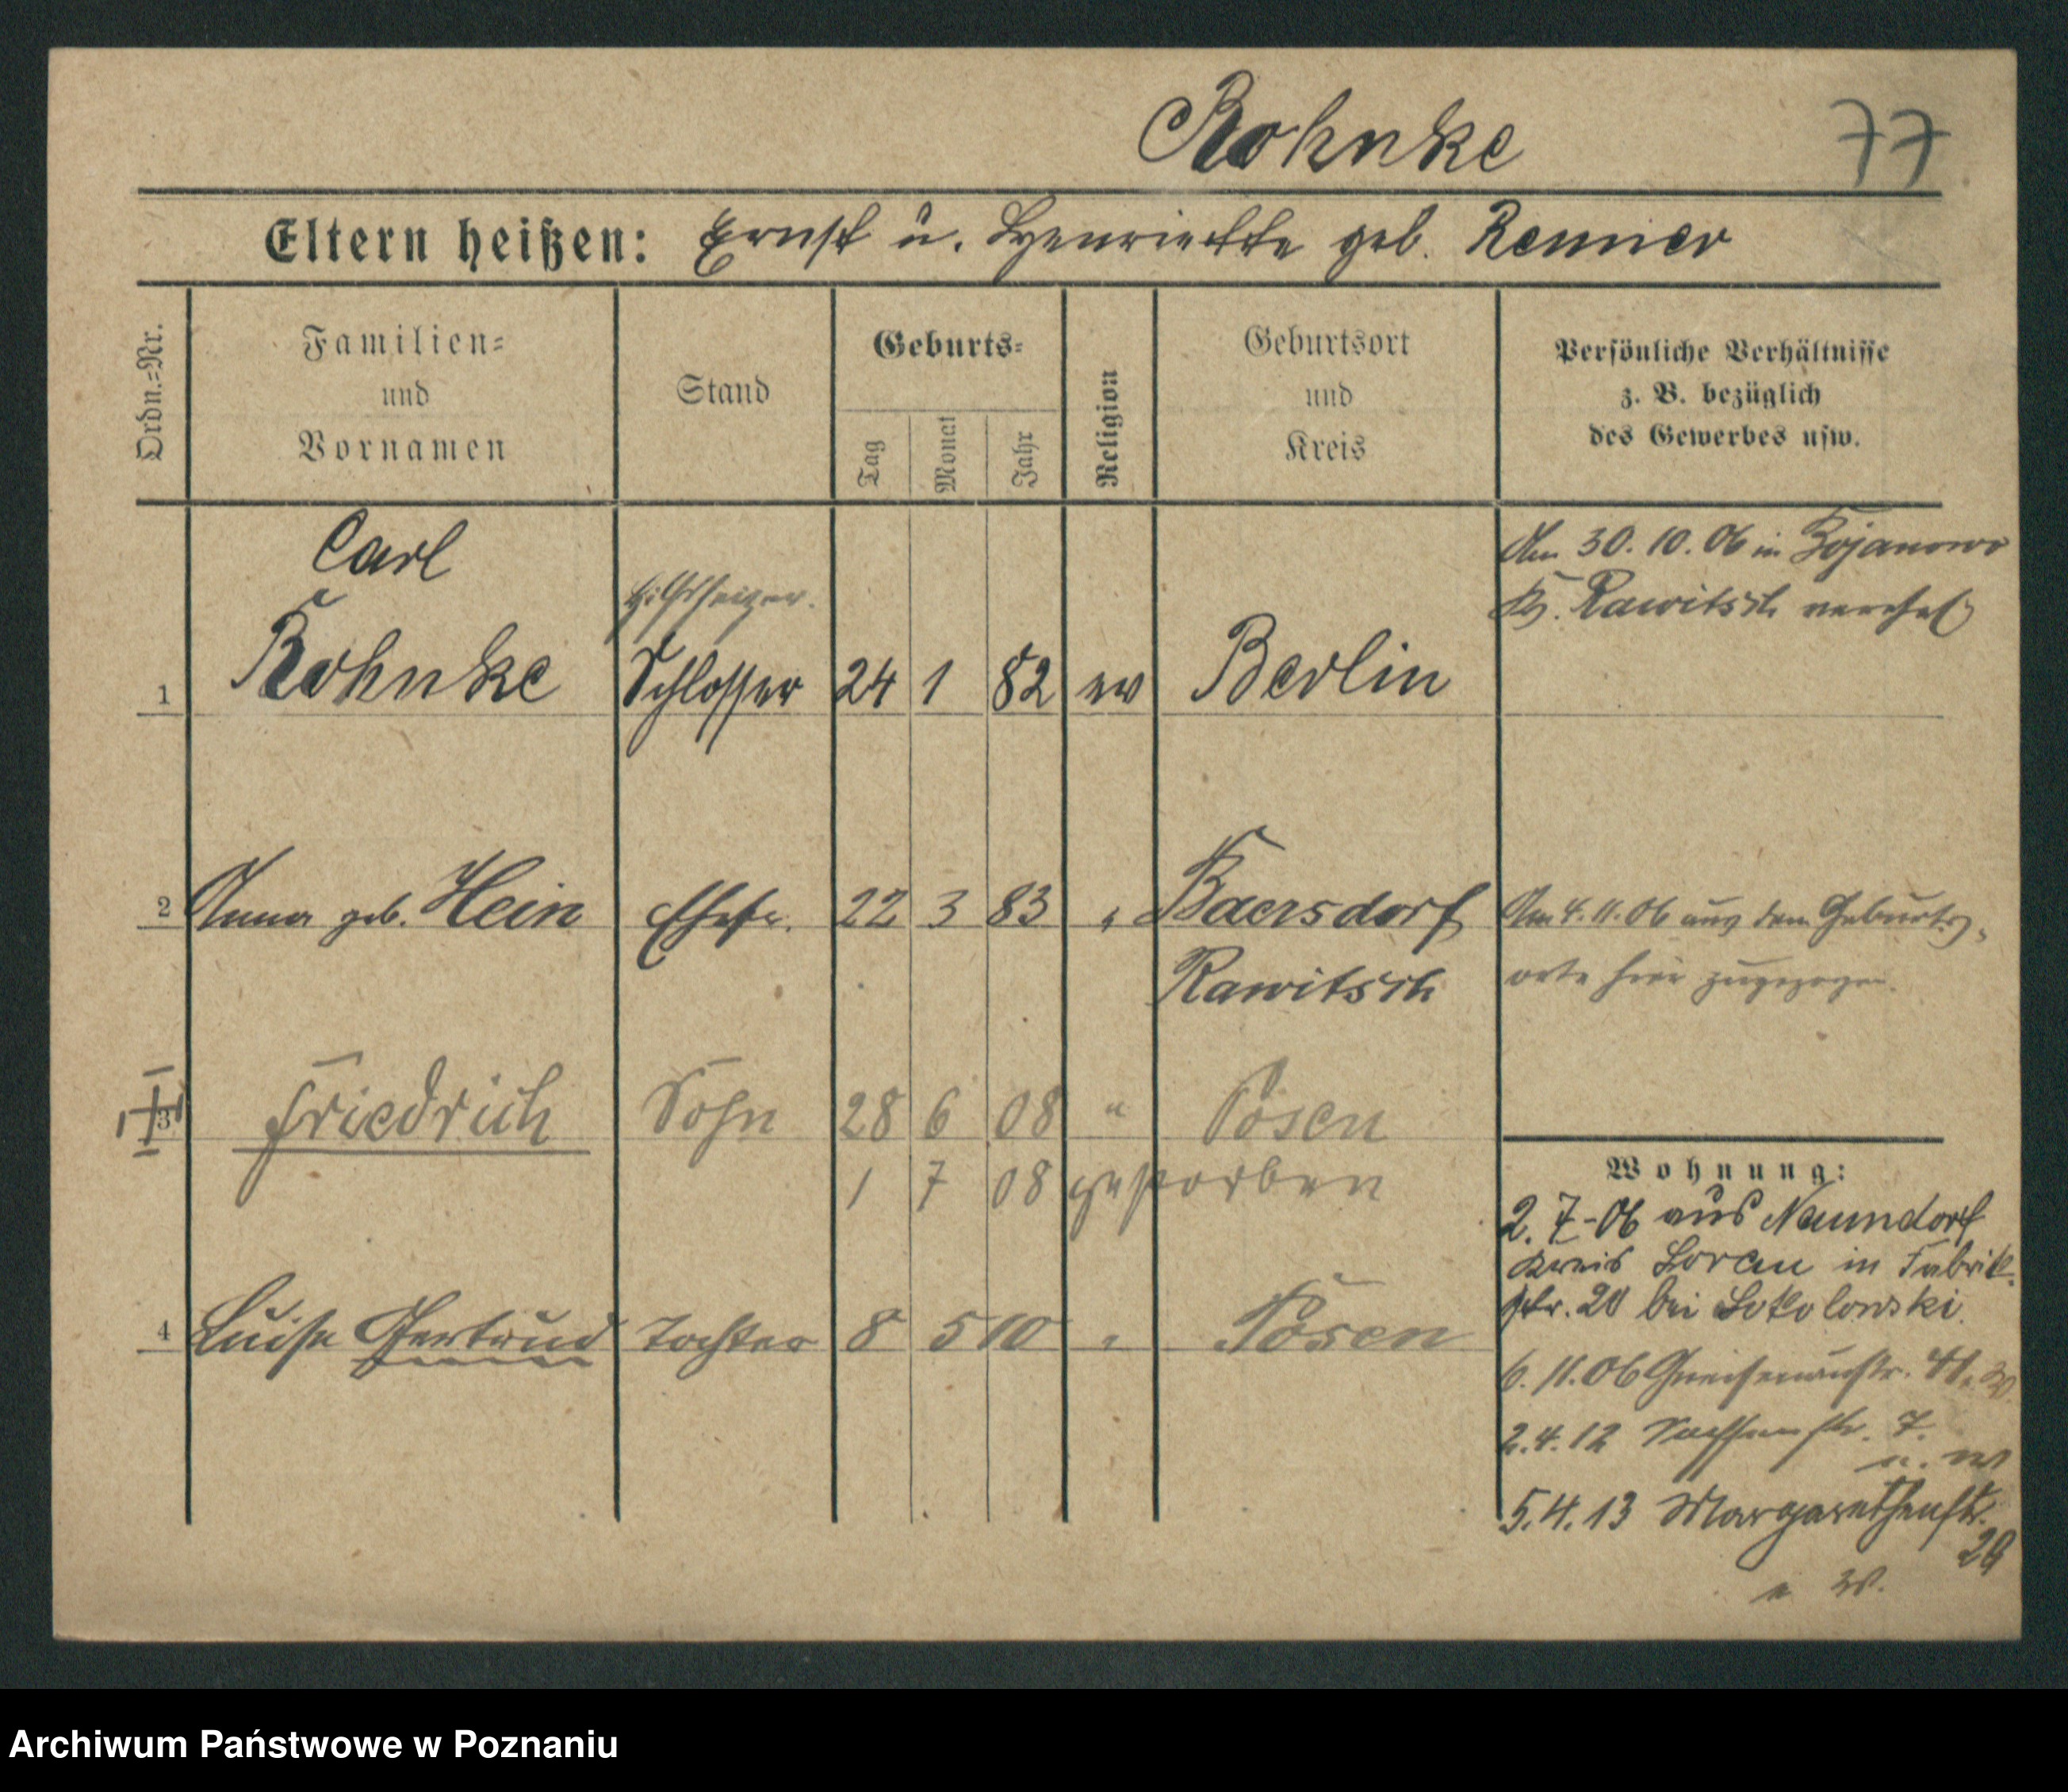 Rohnke 77
Eltern heißen: Ernst u. Henriette geb. Renner
Ordn.=Nr.
Familien= und Vornamen
Stand
Geburts=
Tag Monat Jahr
Religion
Geburtsort und Kreis
Persönliche Verhältnisse
z. B. bezüglich
des Gewerbes usw.
Carl
Hilfsheizer.
1 Rohnke Schlosser 24 1 82 ev Berlin
Am 30. 10. 06 in Bojanowo
Kr. Rawitsch verehel
2 Anna geb. Hein Ehefr. 22 3 83 " Baersdorf
Rawitsch
Am 4. 11. 06 aus dem Geburts-
orte hier zugezogen.
3 Friedrich Sohn 28 6 08 " Posen
1 7 08 gestorben
4 Luise Gertrud Tochter 8 5 10 " Posen
Wohnung:
2. 7-06 aus Naundorf
Kreis Sorau in Fabrik-
str. 28 bei Sokolowski.
6. 11. 06 Gneisenaustr.
2. 4. 12 Sachsenstr. 7.
u. w
5. 4. 13 Margarethenstr.
29
u W.
Archiwum Państwowe w Poznaniu